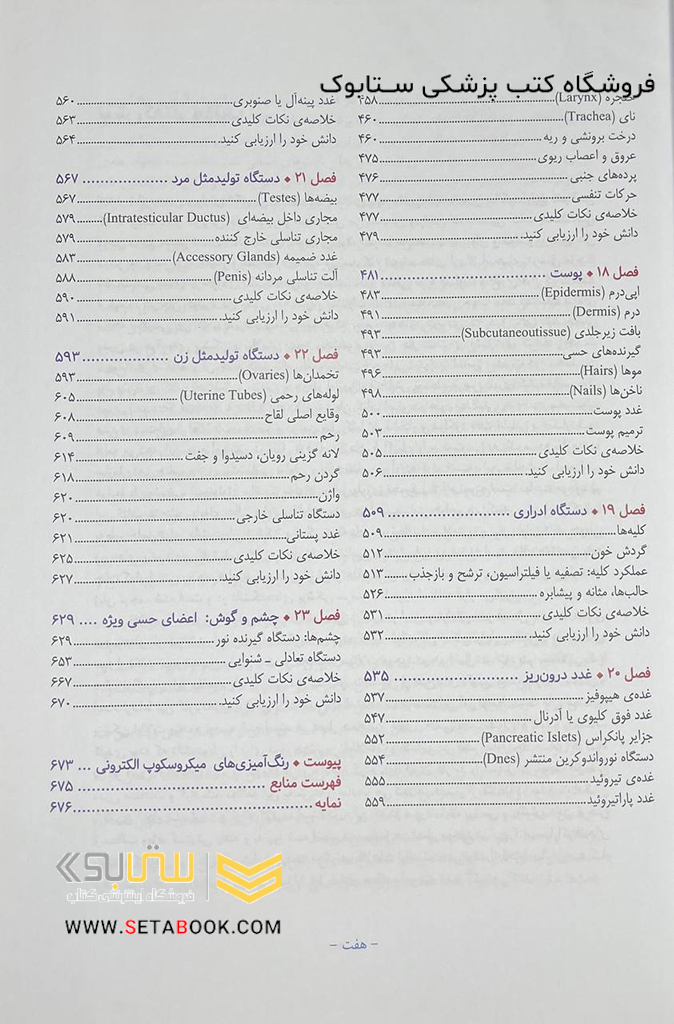 فروشگاه کتب پزشکی ستابوک
حنجره (Larynx)..........۴۵۸
نای (Trachea)..........۴۶۰
درخت برونشی و ریه..........۴۶۰
عروق و اعصاب ریوی..........۴۷۵
پرده‌های جنبی..........۴۷۶
حرکات تنفسی..........۴۷۷
خلاصه‌ی نکات کلیدی..........۴۷۷
دانش خود را ارزیابی کنید...........۴۷۹
فصل ۱۸ • پوست..........۴۸۱
اپی‌درم (Epidermis)..........۴۸۳
درم (Dermis)..........۴۹۱
بافت زیرجلدی (Subcutaneoutissue)..........۴۹۳
گیرنده‌های حسی..........۴۹۳
موها (Hairs)..........۴۹۶
ناخن‌ها (Nails)..........۴۹۸
غدد پوست..........۵۰۰
ترمیم پوست..........۵۰۳
خلاصه‌ی نکات کلیدی..........۵۰۵
دانش خود را ارزیابی کنید...........۵۰۶
فصل ۱۹ • دستگاه ادراری..........۵۰۹
کلیه‌ها..........۵۰۹
گردش خون..........۵۱۲
عملکرد کلیه: تصفیه یا فیلتراسیون، ترشح و بازجذب......۵۱۳
حالب‌ها، مثانه و پیشابره..........۵۲۶
خلاصه‌ی نکات کلیدی..........۵۳۱
دانش خود را ارزیابی کنید...........۵۳۲
فصل ۲۰ • غدد درون‌ریز..........۵۳۵
غده‌ی هیپوفیز..........۵۳۷
غدد فوق کلیوی یا آدرنال..........۵۴۷
جزایر پانکراس (Pancreatic Islets)..........۵۵۲
دستگاه نورواندوکرین منتشر (Dnes)..........۵۵۴
غده‌ی تیروئید..........۵۵۵
غدد پاراتیروئید..........۵۵۹
غدد پینه‌آل یا صنوبری..........۵۶۰
خلاصه‌ی نکات کلیدی..........۵۶۳
دانش خود را ارزیابی کنید...........۵۶۴
فصل ۲۱ • دستگاه تولیدمثل مرد..........۵۶۷
بیضه‌ها (Testes)..........۵۶۷
مجاری داخل بیضه‌ای (Intratesticular Ductus)..........۵۷۹
مجاری تناسلی خارج کننده..........۵۷۹
غدد ضمیمه (Accessory Glands)..........۵۸۳
آلت تناسلی مردانه (Penis)..........۵۸۸
خلاصه‌ی نکات کلیدی..........۵۹۰
دانش خود را ارزیابی کنید...........۵۹۱
فصل ۲۲ • دستگاه تولیدمثل زن..........۵۹۳
تخمدان‌ها (Ovaries)..........۵۹۳
لوله‌های رحمی (Uterine Tubes)..........۶۰۵
وقایع اصلی لقاح..........۶۰۸
رحم..........۶۰۹
لانه گزینی رویان، دسیدوا و جفت..........۶۱۴
گردن رحم..........۶۱۸
واژن..........۶۲۰
دستگاه تناسلی خارجی..........۶۲۰
غدد پستانی..........۶۲۱
خلاصه‌ی نکات کلیدی..........۶۲۵
دانش خود را ارزیابی کنید...........۶۲۷
فصل ۲۳ • چشم و گوش: اعضای حسی ویژه....۶۲۹
چشم‌ها: دستگاه گیرنده نور..........۶۲۹
دستگاه تعادلی ـ شنوایی..........۶۵۳
خلاصه‌ی نکات کلیدی..........۶۶۷
دانش خود را ارزیابی کنید...........۶۷۰
پیوست • رنگ‌آمیزی‌های میکروسکوپ الکترونی...۶۷۳
فهرست منابع..........۶۷۵
نمایه..........۶۷۶
ستابوک
فروشگاه اینترنتی کتاب
WWW.SETABOOK.COM
- هفت -